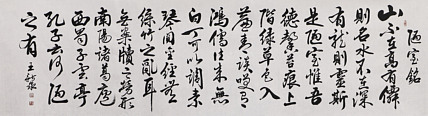 陋室銘
山不在高有僊
則名水不在深
有龍則靈斯
是陋室惟吾
德馨苔痕上
階綠草色入
簾青談笑有
鴻儒往來無
白丁可以調素
琴閱金經無
絲竹之亂耳
無案牘之勞形
南陽諸葛廬
西蜀子雲亭
孔子云何陋
之有